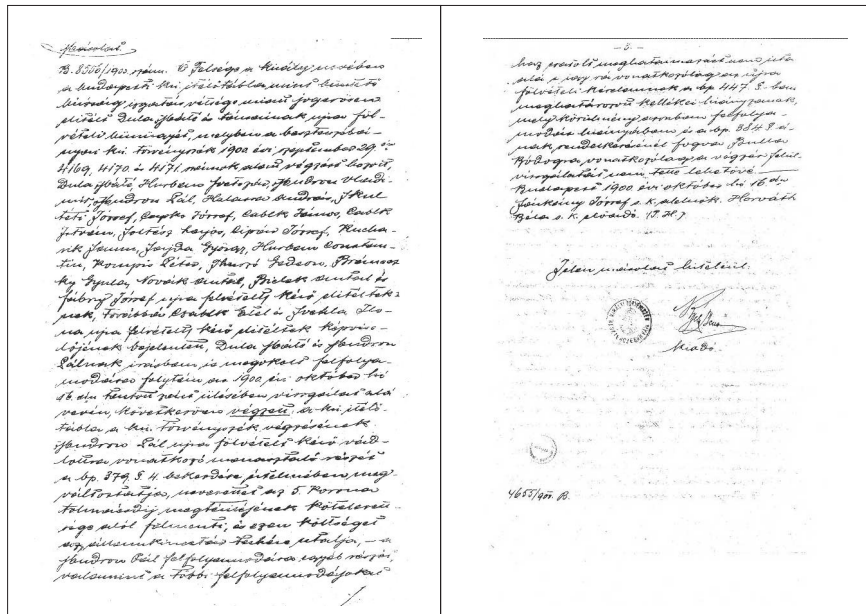 Másolat.
B. 8506/1900. szám. Ő Felsége a király nevében
a budapesti kir. ítélőtábla mint büntető
bíróság izgatás vétsége miatt jogerősen
elítélt Dula Máté és társainak ujra föl-
vételi bünügyét, melyben a besztercebá-
nyai kir. törvényszék 1900. évi szeptember 29. én
4169, 4170. és 4171. számok alatt végzést hozott,
Dula Máté, Hurban Svetozár, Mudron Vladi-
mir, Mudron Pál, Halassa András, Skul-
téti József, Capko József, Cablk János, Cablk
István, Soltész Lajos, Cipár József, Kucha-
rik János, Sajda György, Hurban Constan-
tin, Kompis Péter, Thurzó Gedeon,
ky Gyula, Novák Antal, Bielek Antal és
Fábry József ujra felvételt kérő elitéltek-
nek, továbbá Csablk Elek és Ilo-
na ujra felvételt kérő elitéltek képvise-
lőjének bejelentett, Dula Máté és Mudron
Pálnak írásban is megokolt felfolya-
modása folytán az 1900. évi október hó
16. án tartott ülésében vizsgálat alá
vevén, következően végzett: a kir. ítélő-
tábla a kir. törvényszék végzésének
Mudron Pál ujra fölvételt kérő vád-
lottra vonatkozó részét
a bp. 379. §. 4. bekezdése értelmében meg-
változtatja, nevezettet az 5. korona
tolmácsdíj megtérítésének kötelezett-
sége alól felmenti, és ezen költséget
az államkincstár terhére utalja, — a
Mudron Pál felfolyamodására egyéb részei,
valamint a többi felfolyamodásokat
./.
— 3. —
ház meghatározását nem uta-
sítá s így rá vonatkozólag az ujra
fölvételi kérelemnek a bp. 447. §-ban
meghatározott kellékei hiányzanak,
mely körülmény azonban felfolya-
modás hiányában és a bp. 384 §. á-
nak rendelkezésénél fogva Bulla
vonatkozólag a végzés felül-
vizsgálatát nem tette lehetővé. —
Budapest 1900 évi október hó 16. án
József s. k. elnök. Horváth
Béla s. k. előadó. (P. H.)
Jelen másolat hiteléül:
kiadó.
4655/900. B.